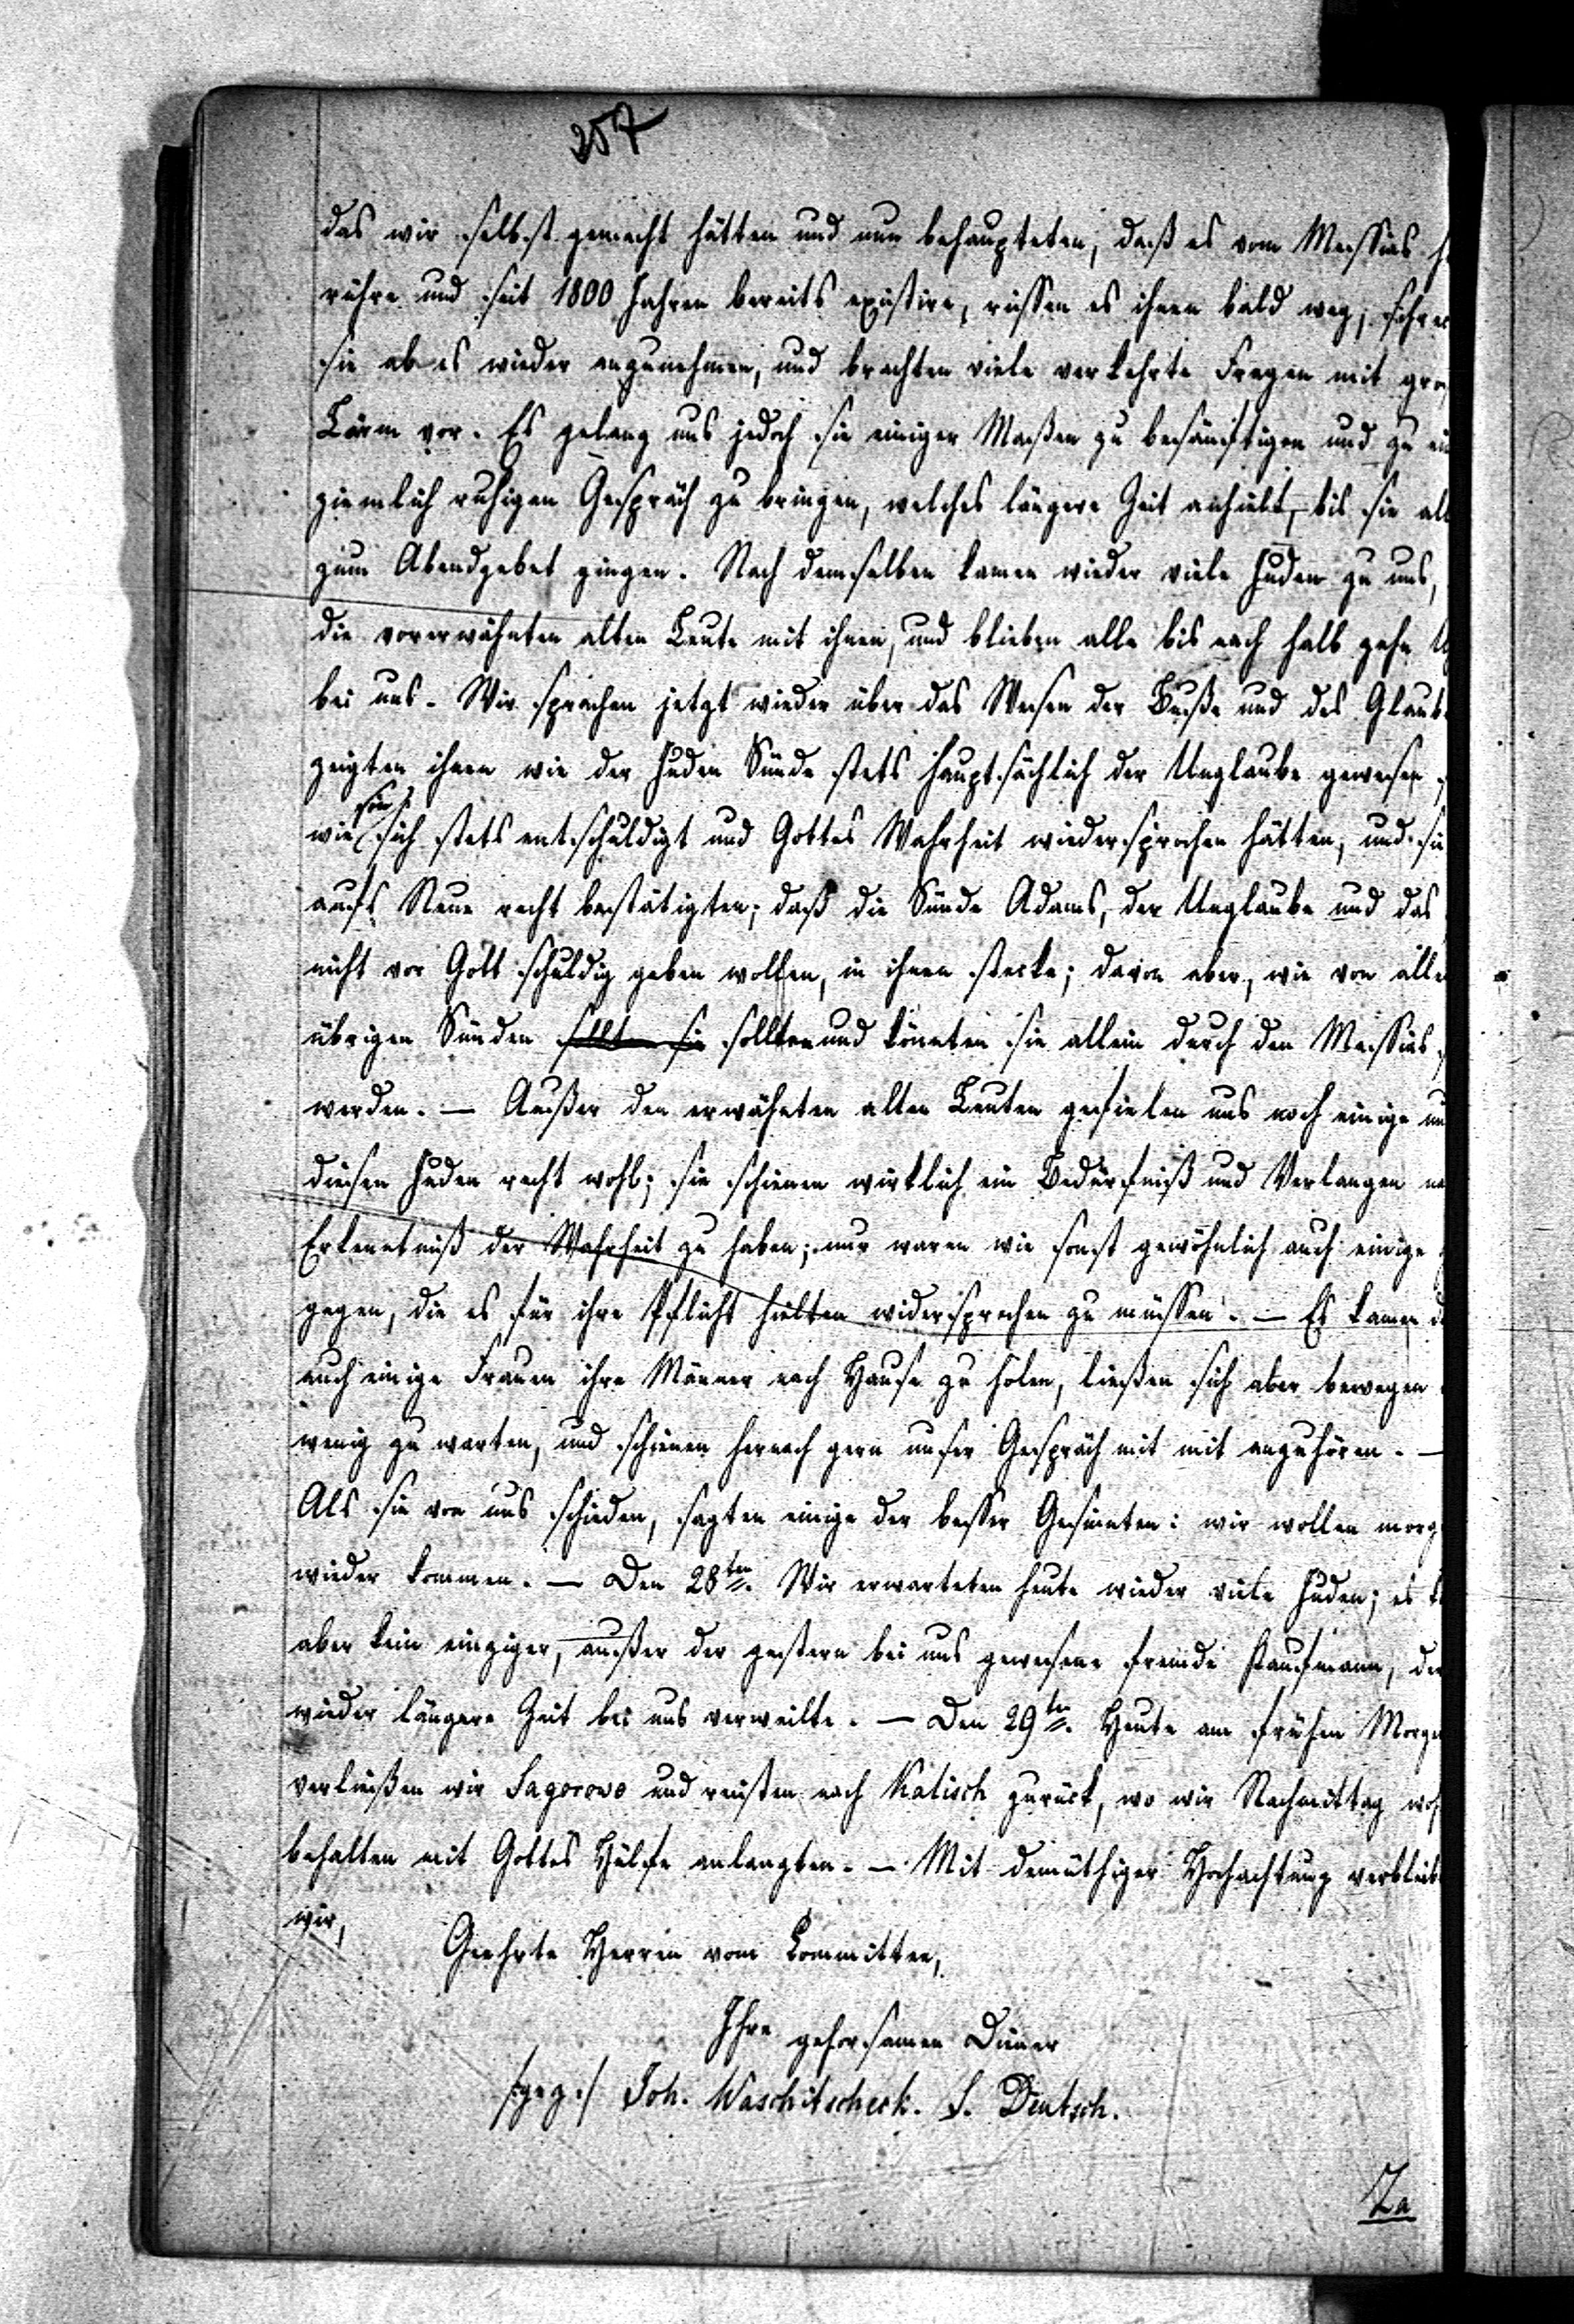 257
das wir selbst gemacht hätten und nun behaupteten, daß es vom Messias he
rühre und seit 1800 Jahren bereits existire, rissen es ihnen bald weg, schre
sie ab es wieder anzunehmen, und brachten viele verkehrte Fragen mit gro
Lärm vor. Es gelang uns jedoch sie einiger Maßen zu besänftigen und zu ei
ziemlich ruhigen Gespräch zu bringen, welches längere Zeit anhielt, bis sie all
zum Abendgebet gingen. Nach demselben kamen wieder viele Juden zu uns,
die vorerwähnten alten Leute mit ihnen, und blieben alle bis nach halb zehn U
bei uns. Wir sprachen jetzt wieder über das Wesen der Buße und des Glaube
zeigten ihnen wie der Juden Sünde stets hauptsächlich der Unglaube gewesen,
wie sie sich stets entschuldigt und Gottes Wahrheit wiedersprochen hätten, und sie
aufs Neue recht bestätigten; daß die Sünde Adams, der Unglaube und das
nicht vor Gott schuldig geben wollen, in ihnen stecke; davon aber, wie von alle
übrigen Sünden sollten sie sollten und könnten sie allein durch den Messias
werden. — Außer den erwähnten alten Leuten gefielen uns noch einige un
diesen Juden recht wohl; sie schienen wirklich ein Bedürfniß und Verlangen na
Erkenntniß der Wahrheit zu haben; nur waren wie sonst gewöhnlich auch einige
gegen, die es für ihre Pflicht hielten widersprechen zu müssen. — Es kamen d
auch einige Frauen ihre Männer nach Hause zu holen, ließen sich aber bewegen
wenig zu warten, und schienen hernach gern unser Gespräch mit mit anzuhören. —
Als sie von uns schieden, sagten einige der besser Gesinnten: wir wollen morg
wieder kommen. — Den 28ten. Wir erwarteten heute wieder viele Juden; es k
aber kein einziger, außer der gestern bei uns gewesene fremde Kaufmann, der
wieder längere Zeit bei uns verweilte. — Den 29ten. Heute am frühen Morge
verließen wir Sagorowo und reisten nach Kalisch zurück, wo wir Nachmittag woh
behalten mit Gottes Hülfe anlangten. — Mit demüthiger Hochachtung verbleibe
wir,
Geehrte Herren vom Committee,
Ihre gehorsamen Diener
/:gez:/ Joh. Waschitscheck. S. Deutsch.
Za